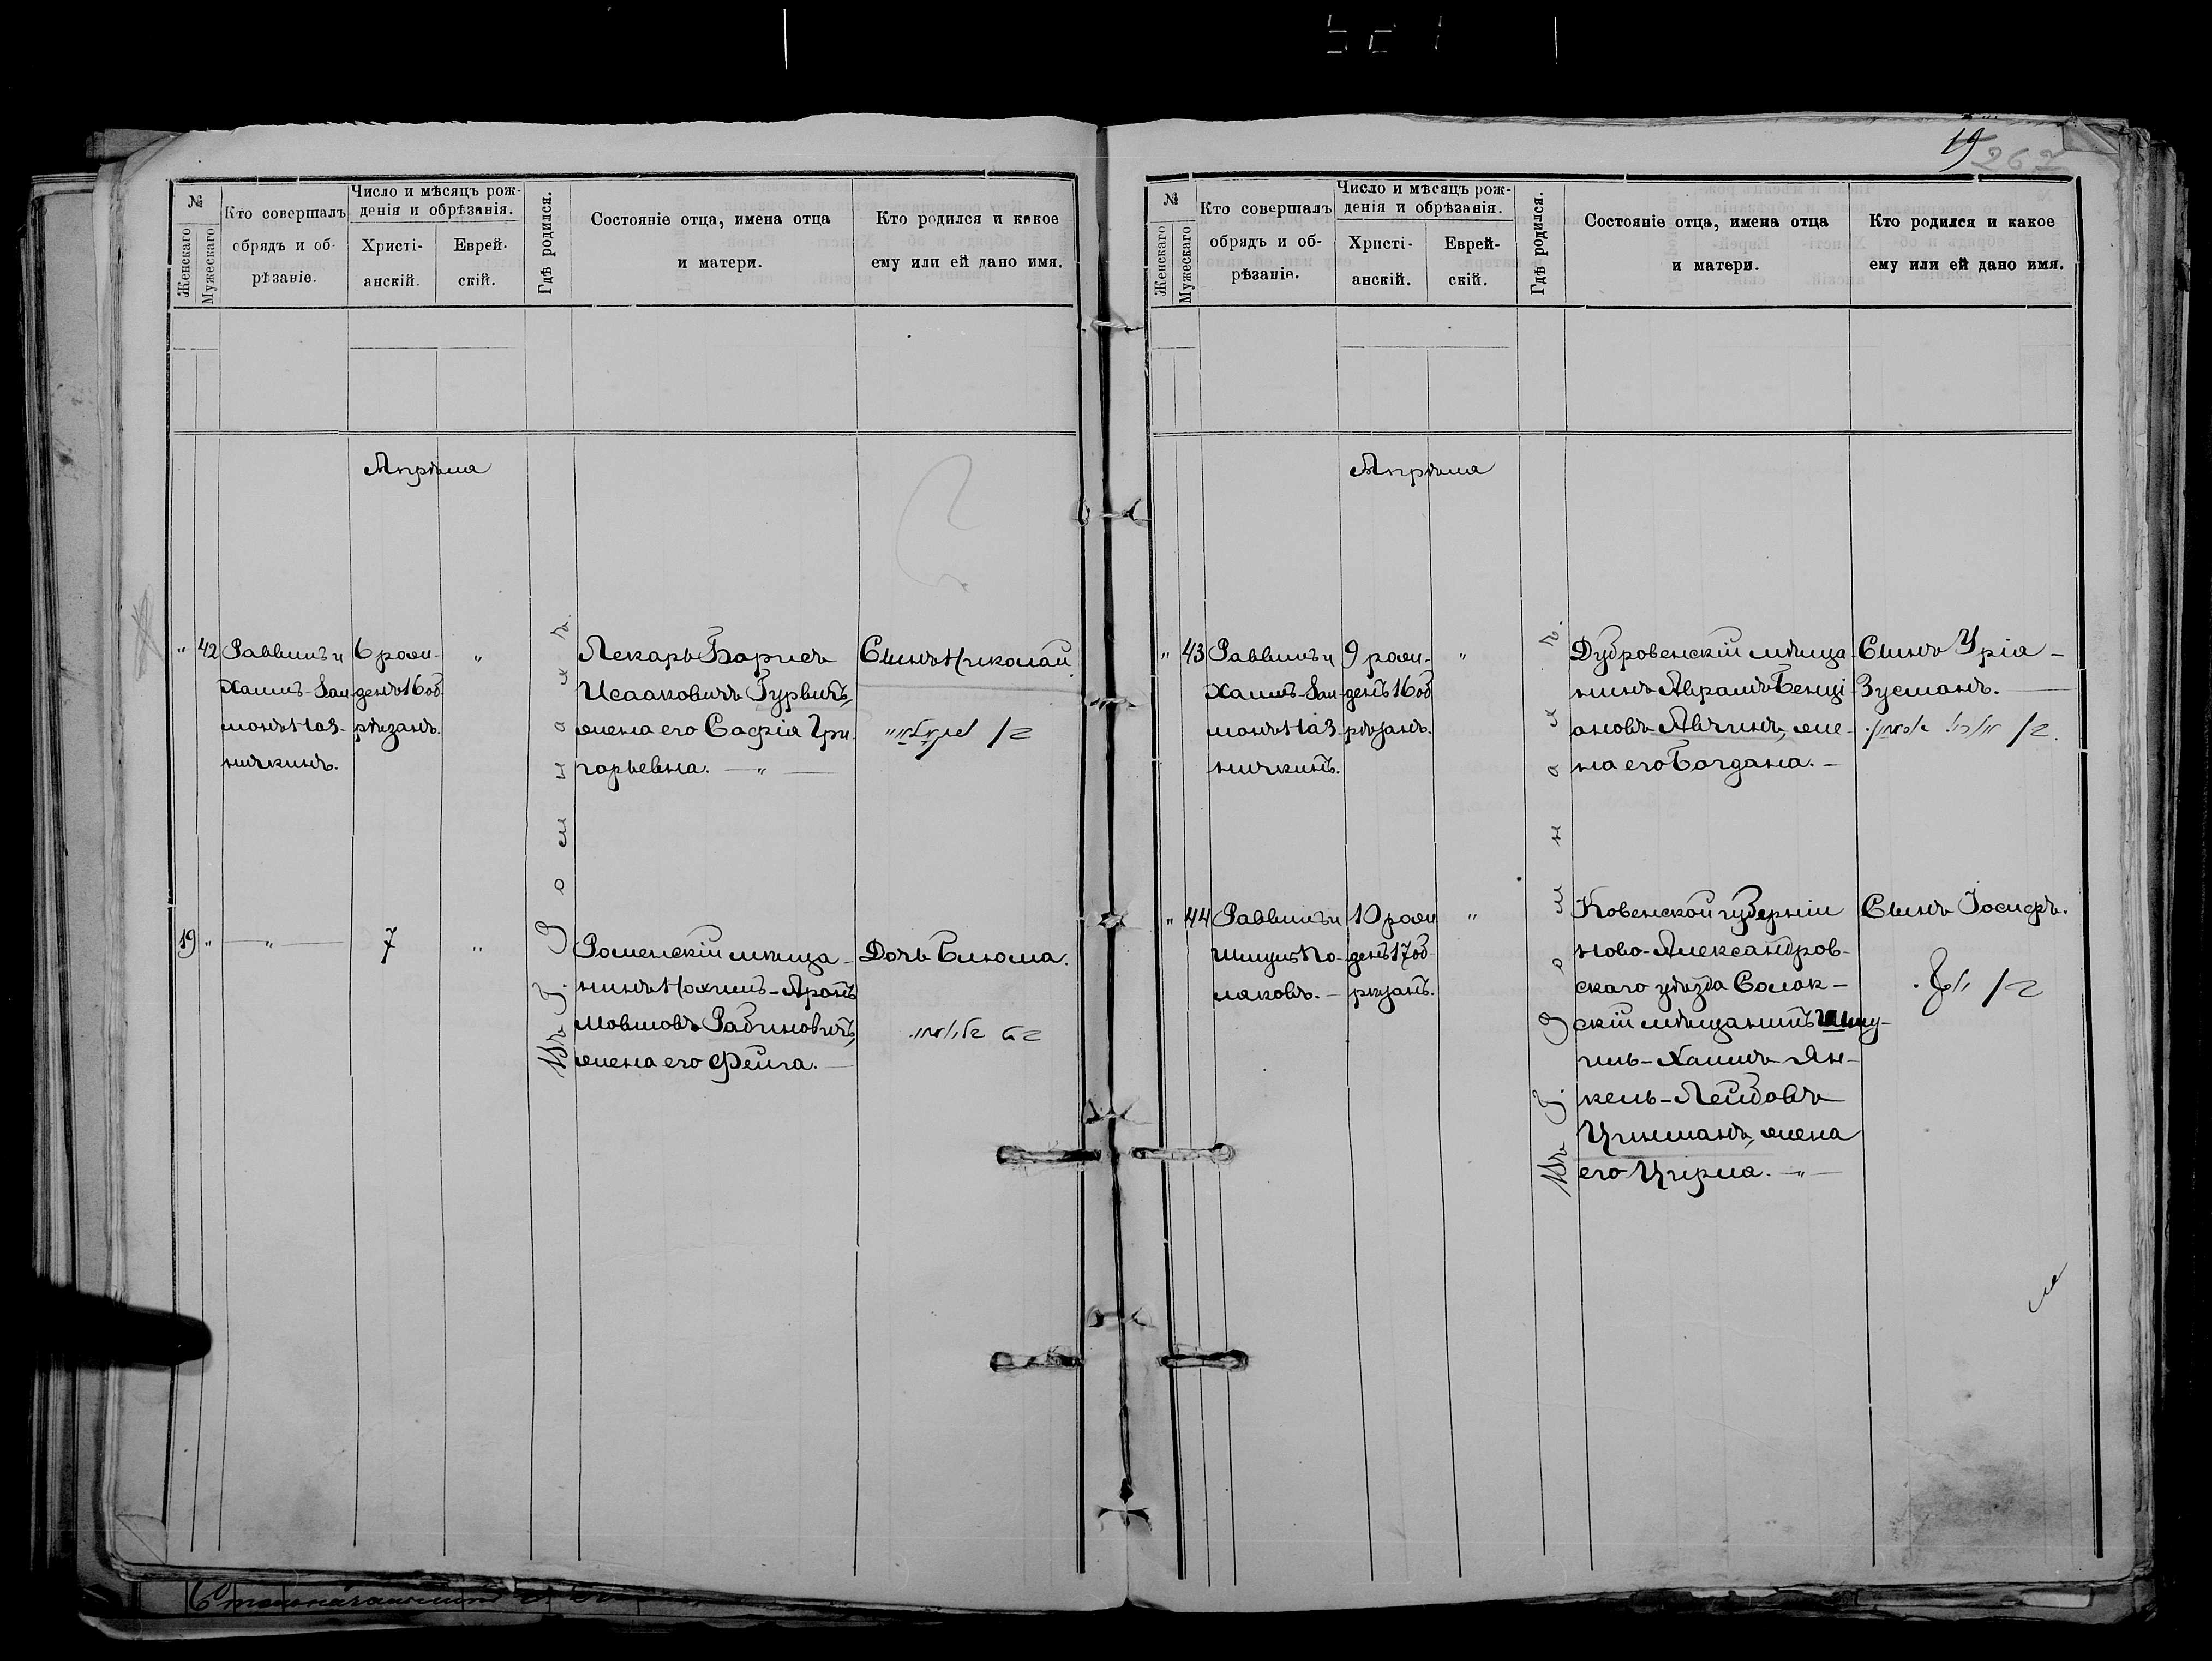 19
267
№
Женскаго
Мужескаго
Кто совершалъ
обрядъ и об-
рѣзаніе.
Число и мѣсяцъ рож-
денія и обрѣзанія.
Христі-
анскій.
Еврей-
скій.
Гдѣ родился.
Состояніе отца, имена отца
и матери.
Кто родился и какое
ему или ей дано имя.
Апрѣля
" 42
Раввинъ и
Хаимъ-Зал-
монъ Наз-
ничкинъ.
6 рож-
денъ 16 об-
рѣзанъ.
"
Въ г. Ромнахъ.
Лекарь Борисъ
Исааковичъ Гурвичъ,
жена его Софія Гри-
горьевна. — " —
Сынъ Николай.
19 "
— " —
7
"
Роменскій мѣща-
нинъ Нохимъ-Аронъ
Мовшовъ Рабиновичъ,
жена его Фейга. —
Дочь Блюма.
№
Женскаго
Мужескаго
Кто совершалъ
обрядъ и об-
рѣзаніе.
Число и мѣсяцъ рож-
денія и обрѣзанія.
Христі-
анскій.
Еврей-
скій.
Гдѣ родился.
Состояніе отца, имена отца
и матери.
Кто родился и какое
ему или ей дано имя.
Апрѣля
" 43
Раввинъ и
Хаимъ-Зал-
монъ Наз-
ничкинъ.
9 рож-
денъ 16 об-
рѣзанъ.
"
Въ г. Ромнахъ.
Дубровенскій мѣща-
нинъ Абрамъ Бенці-
оновъ Явчинъ, же-
на его Богдана. —
Сынъ Урія-
Зусманъ. —
" 44
Раввинъ и
Шмуль По-
ляковъ. —
10 рож-
денъ 17 об-
рѣзанъ.
"
Ковенской губерніи
Ново-Александров-
скаго уѣзда Солок-
скій мѣщанинъ Шму-
иль-Хаимъ Ян-
кель-Лейбовъ
Цинманъ, жена
его Цирла. — " —
Сынъ Іосифъ.